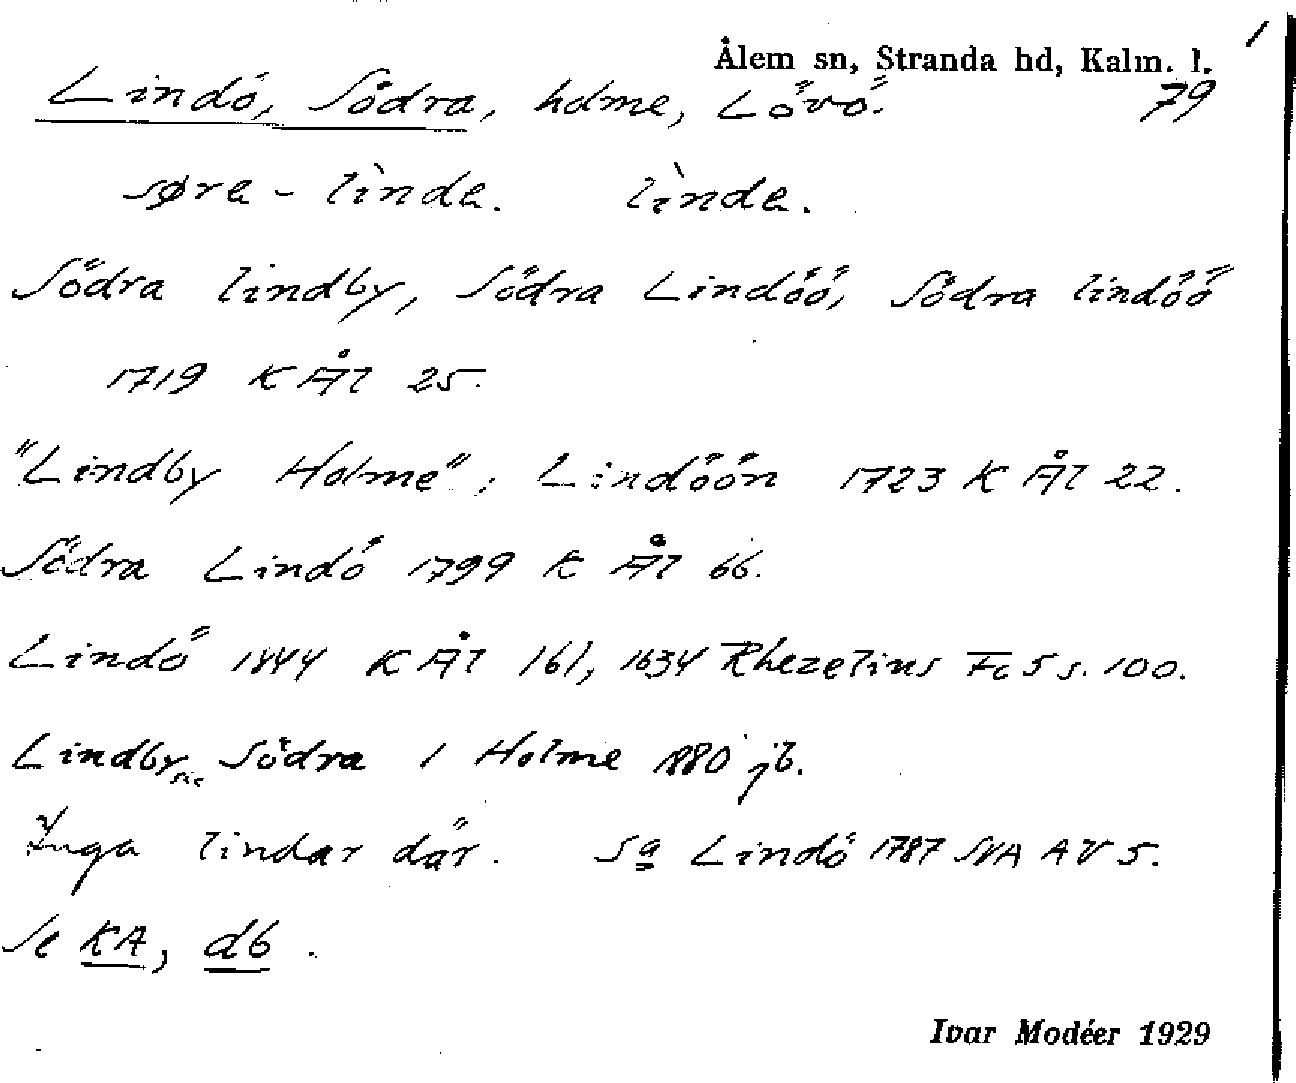 Ålem sn, Stranda hd, Kalm. l. 1
Lindö, Södra, holme, Lövö. 79
søra - lìnda. lìnda.
Södra lindby, Södra Lindöö, Södra lindöö
1719 K Ål 25.
"Lindby Holme", Lindöön 1723 K Ål 22.
Södra Lindö 1799 K Ål 66.
Lindö 1844 K Ål 161, 1634 Rhezelius Fc 5 s. 100.
Lindby sic Södra 1 Holme 1880 jb.
Inga lindar där. Sa Lindö 1787 SVA AV 5.
Se KA, db.
Ivar Modéer 1929